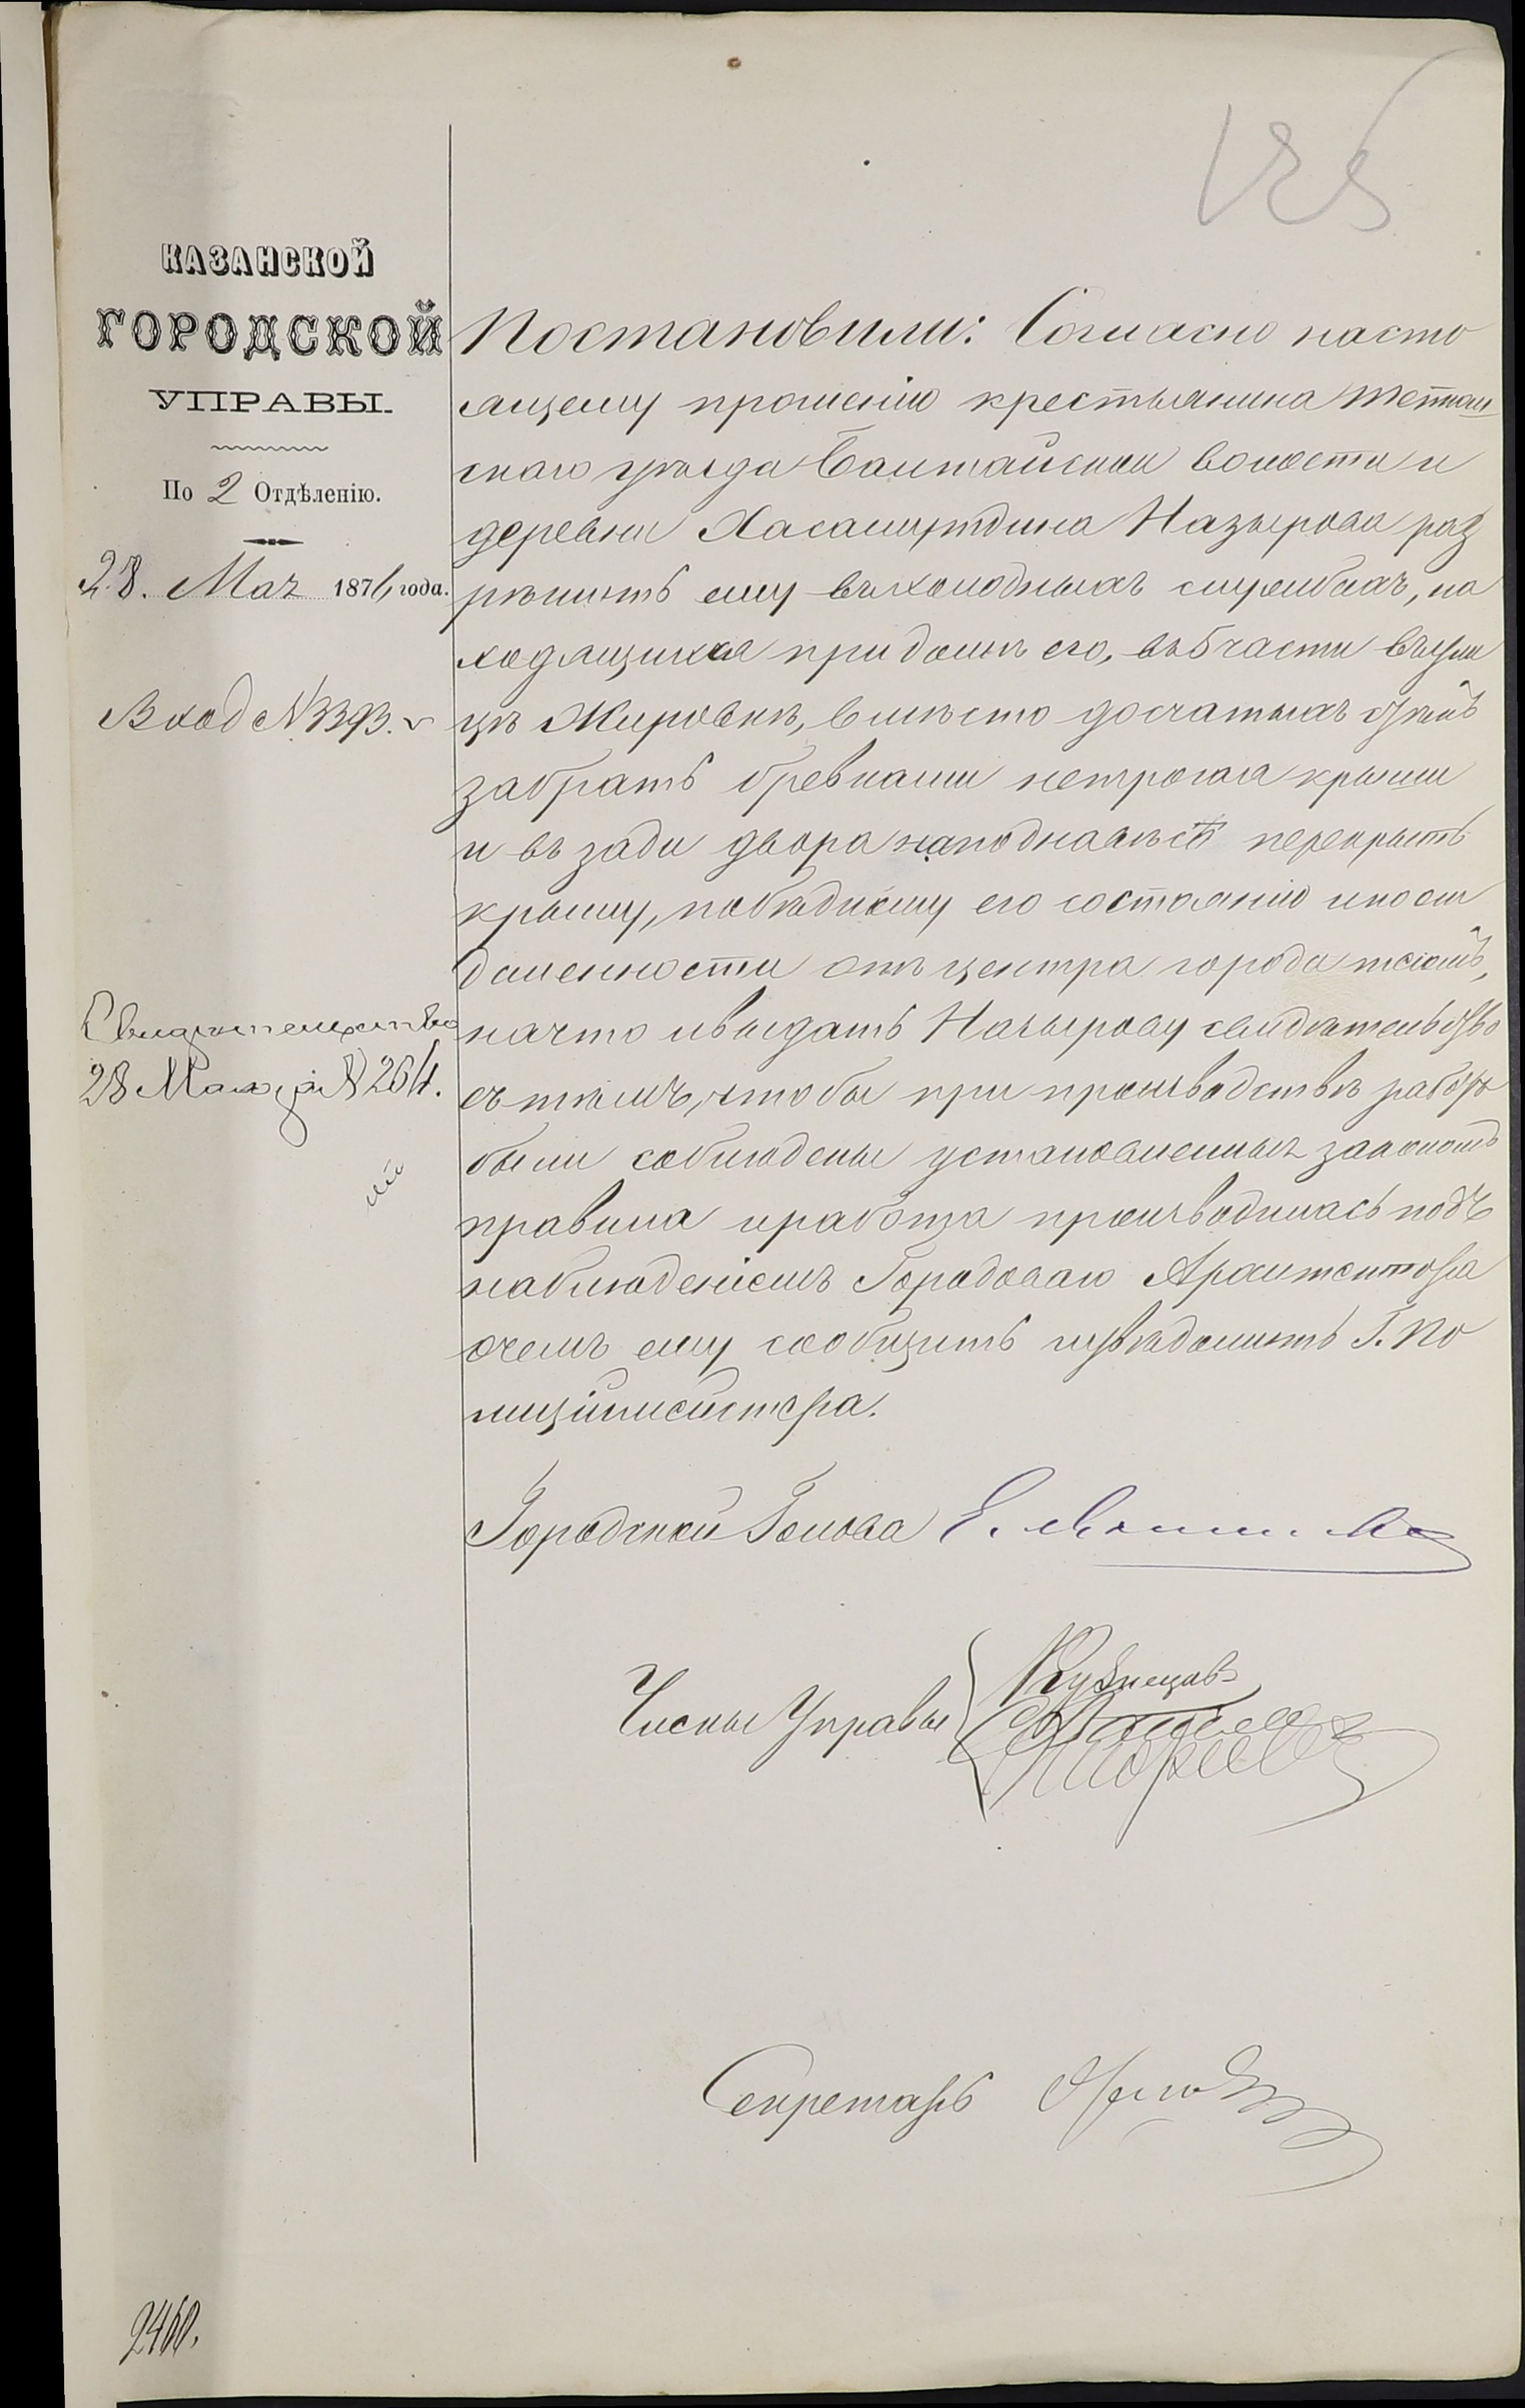 КАЗАНСКОЙ
ГОРОДСКОЙ
УПРАВЫ.
По 2 Отдѣленію.
28. Мая 1876 года.
Вход № 3393.
Свидѣтельство
28 Мая за № 2614.
Постановили: Согласно насто
ящему прошенію крестьянина Тетюш
скаго уѣзда Балтайской волости и
деревни Хасамутдина Назырова раз
рѣшить ему въ холодныхъ службахъ, на
ходящихся при домѣ его, въ 5 части въ ули
цѣ Жировкѣ, вмѣсто досчатыхъ стѣнъ
забрать бревнами нетрогая крыши
и въ зади двора на поднавѣсѣ перекрыть
крышу, по бѣдному его состоянію и по от
даленности отъ центра города тесомъ,
на что и выдать Назырову свидѣтельство
съ тѣмъ, чтобы при производствѣ работъ
были соблюдены установленныя закономъ
правила и работа производилась подъ
наблюденіемъ Городоваго Архитектора
о чемъ ему сообщить и увѣдомить Г. По
лиціймейстера.
Городской Голова Е.
Члены Управы Кузнецовъ
Секретарь
2460.